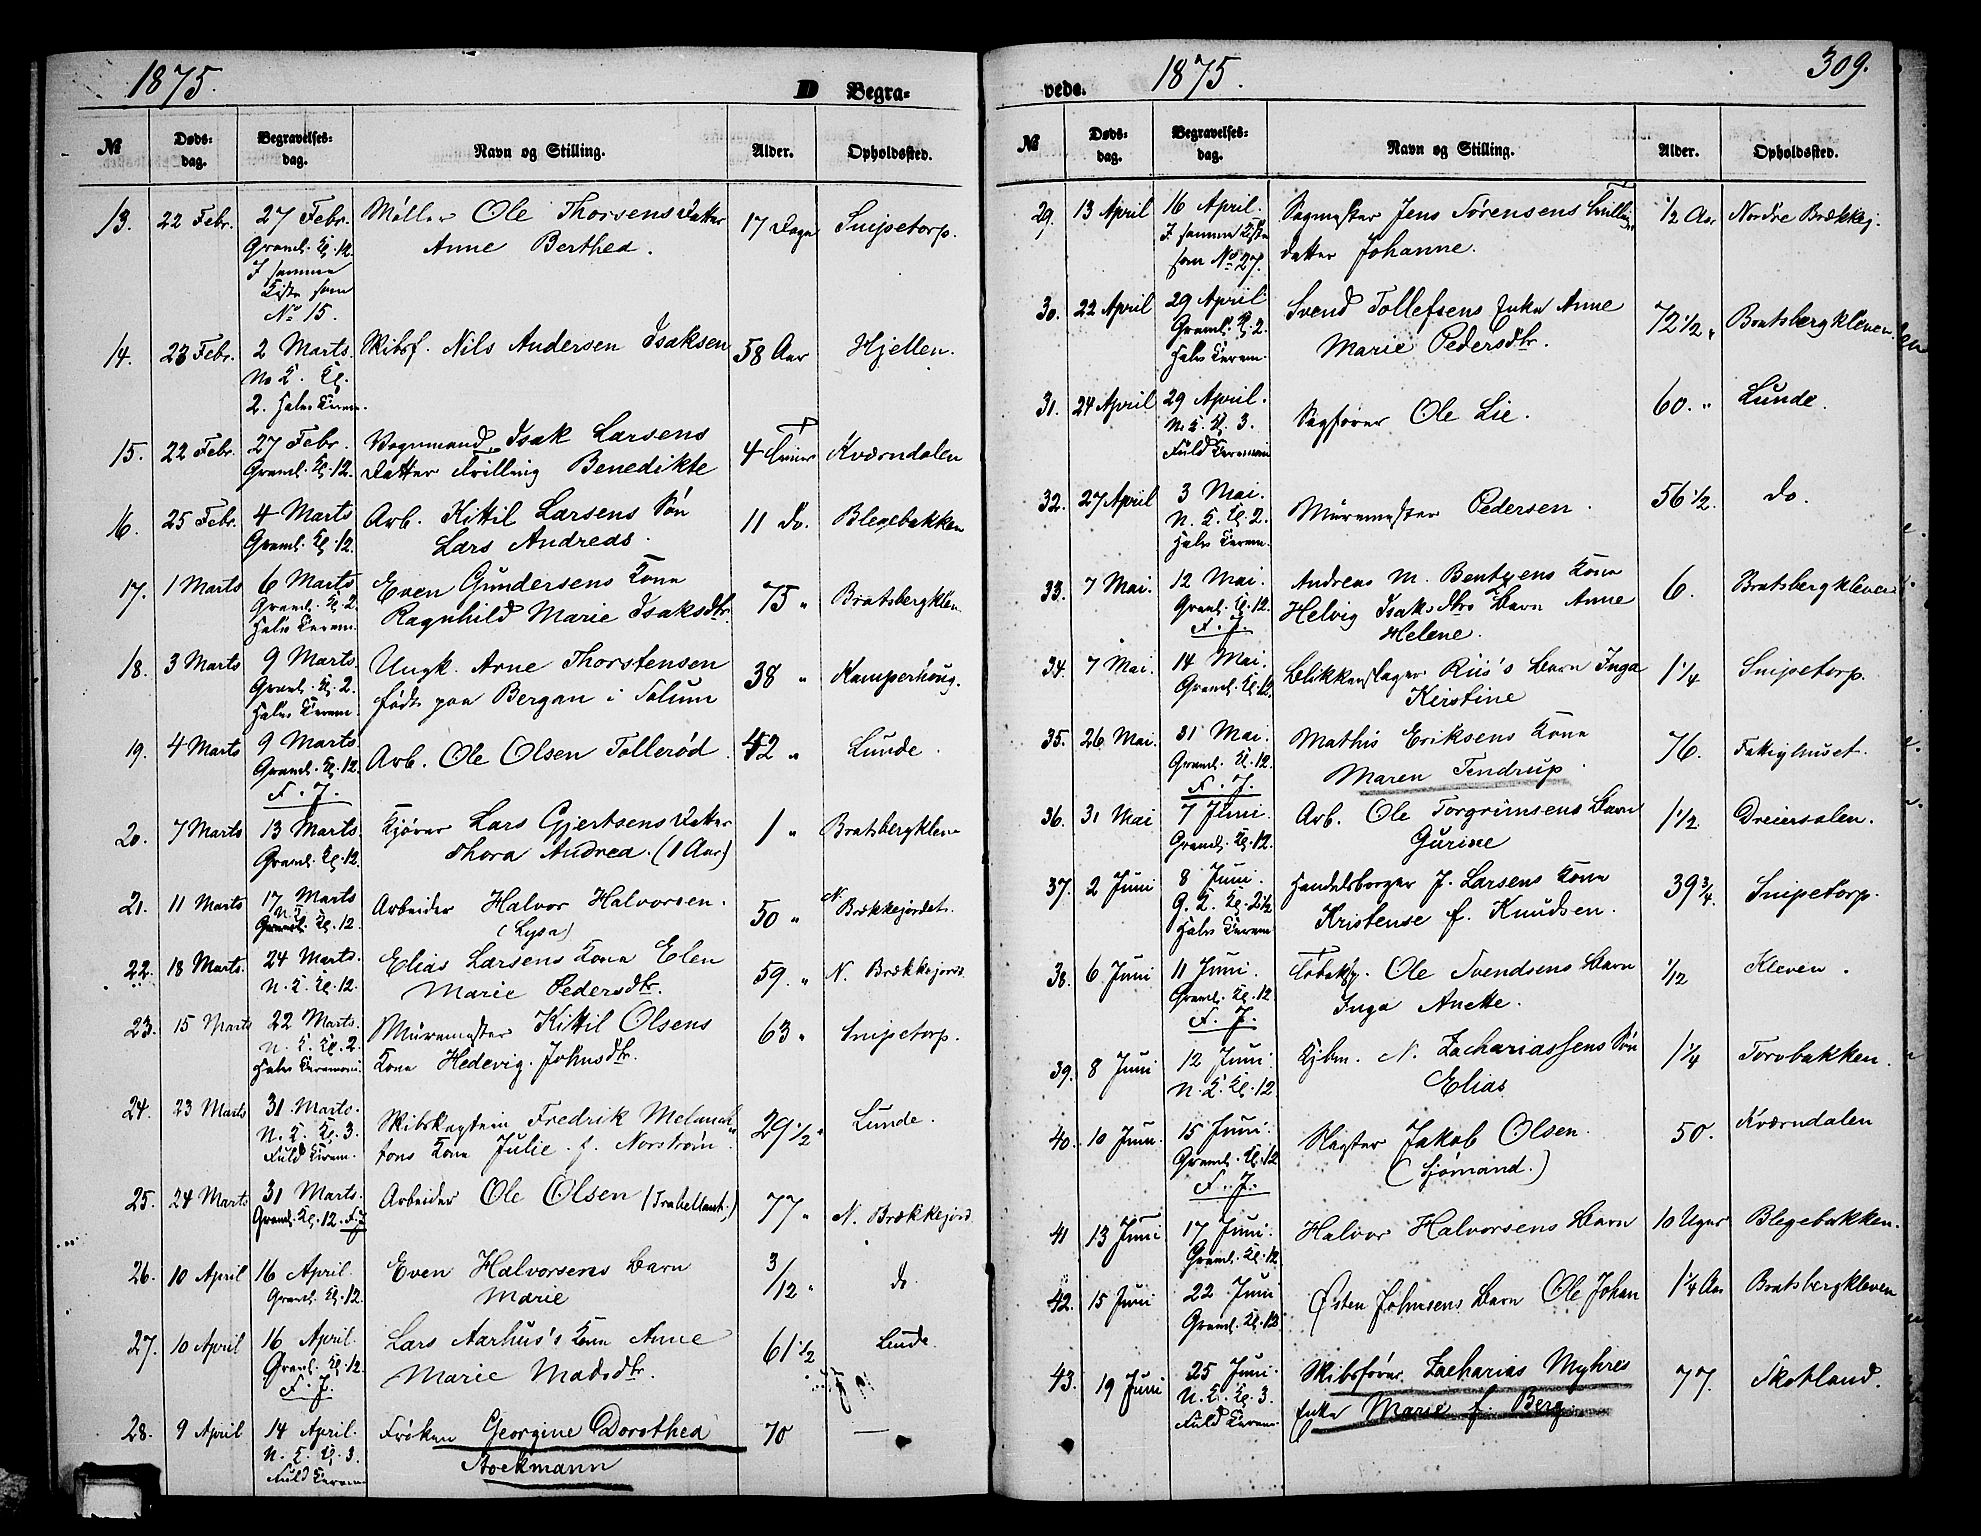 1875.
D Begra-
№ Døds-dag. Begravelses-dag. Navn og Stilling. Alder. Opholdssted.
13. 22 Febr. 27 Febr. Møller Ole Thorsens Datter 17 Dage Snipetorp.
Graml. Kl. 12. Anne Berthea.
I samme
Kiste som
No 15.
14. 23 Febr. 2 Marts Skibsf. Nils Andersen Isaksen 58 Aar Hjellen.
No K. Kl.
2. Halv Cerem.
15. 22 Febr. 27 Febr. Vognmand Isak Larsens 4 Timer Kværndalen
Graml. Kl. 12. Datter Tvilling Benedikte
16. 25 Febr. 4 Marts Arb. Kittil Larsens Søn 11 Do. Blegebakken
Graml. Kl. 12. Lars Andreas.
17. 1 Marts 6 Marts Even Gundersens Kone 75 " Bratsbergklev.
Graml. Kl. 2. Ragnhild Marie Isaksdtr.
Halv Cerem.
18. 3 Marts 9 Marts Ungk. Arne Thorstensen 38 " Kamperhoug.
Graml. Kl. 2. født paa Bergan i Solum
Halv Cerem.
19. 4 Marts 9 Marts Arb. Ole Olsen Tollerød 42 " Lunde.
Graml. Kl. 12.
F. J.
20. 7 Marts 13 Marts Kjører Lars Gjertsens Datter 1 " Bratsbergkleve
Graml. Kl. 12. Thora Andrea. (1 Aar)
21. 11 Marts 17 Marts Arbeider Halvor Halvorsen. 50 " N. Brækkejordet.
N. K. Kl. 12. (Lysa)
22. 18 Marts. 24 Marts. Elias Larsens Kone Elen 59. " N. Brækkejord.
N. K. Kl. 12. Marie Pedersdtr.
23. 15 Marts 22 Marts. Muremester Kittil Olsens 63 " Snipetorp.
N. K. Kl. 2 Kone Hedevig Johnsdtr.
Halv Ceremoni
24. 23 Marts 31 Marts. Skibskaptein Fredrik Melanch- 29 1/2 " Lunde.
N. K. Kl. 3. tons Kone Julie f. Norstrøm
Fuld Cerem.
25. 24 Marts 31 Marts. Arbeider Ole Olsen (Trabellant.) 77 " N. Brækkejord
Graml. Kl. 12. F. J
26. 10 April 16 April Even Halvorsens Barn 3/12 " do.
Graml. Kl. 12. Marie
27. 10 April 16 April. Lars Aarhus's Kone Anne 61 1/2 Lunde
Graml. Kl. 12. Marie Madsdtr.
F. J.
28. 9 April 14 April. Frøken Georgine Dorothea 70 —
N. K. Kl. 3. Stockmann
Fuld Cerem
vede. 1875. 309.
№ Døds-dag. Begravelses-dag. Navn og Stilling. Alder. Opholdssted.
29. 13 April 16 April. Sagmester Jens Sørensens Tvilling 1/2 Aar Nordre Brækkej.
I samme Kiste datter Johanne.
som No 27.
30. 22 April 29 April Svend Tollefsens Enke Anne 72 1/2 " Bratsbergkleven
Graml. Kl. 2. Marie Pedersdtr.
Halv Cerem.
31. 24 April 29 April. Sagfører Ole Lie. 60. " Lunde.
N. K. Kl. 3.
Fuld Ceremoni
32. 27 April 3 Mai. Muremester Pedersen. 56 1/2. do.
N. K. Kl. 2.
Halv Cerem.
33. 7 Mai. 12 Mai. Andreas M. Bentzens Kone 6. Bratsbergkleven
Graml. Kl. 12. Helvig Isaksdtrs Barn Anne
F. J. Helene.
34. 7 Mai. 14 Mai. Blikkenslager Riis's Barn Inga 1 1/4 Snipetorp.
Graml. Kl. 12. Kirstine
35. 26 Mai. 31 Mai. Mathis Eriksens Kone 76. Fattighuset.
Graml. Kl. 12. Maren Tendrup.
F. J.
36. 31 Mai 7 Juni Arb. Ole Torgrimsens Barn 1 1/2. Dreiersalen.
Graml. Kl. 12. Gurine
37. 2 Juni 8 Juni. Handelsborger J. Larsens Kone 39 3/4. Snipetorp.
G. K. Kl. 2 1/2 Kristense f. Knudsen.
Halv Cerem
38. 6 Juni 11 Juni. Ole Svendsens Barn 1/12 Kleven.
Graml. Kl. 12 Inga Anette.
F. J.
39. 8 Juni 12 Juni. Kjbm. N. Zachariassens Søn 1 1/4 Torvbakken.
N. K. Kl. 12. Elias
40. 10 Juni. 15 Juni. Slagter Jakob Olsen. 50. Kværndalen
Graml. Kl. 12 (Sjømand.)
F. J.
41 13 Juni 17 Juni. Halvor Halvorsens Barn 10 Uger Blegebakken.
Graml. Kl. 12
42. 15 Juni 22 Juni Østen Johnsens Barn Ole Johan 1 1/4 Aar Bratsbergkleven
Graml. Kl. 12
43. 19 Juni 25 Juni. Skibsfører Zacharias Myhres 77. Skotland.
N. K. Kl. 3. Enke Marie f. Berg.
Fuld Cerem.